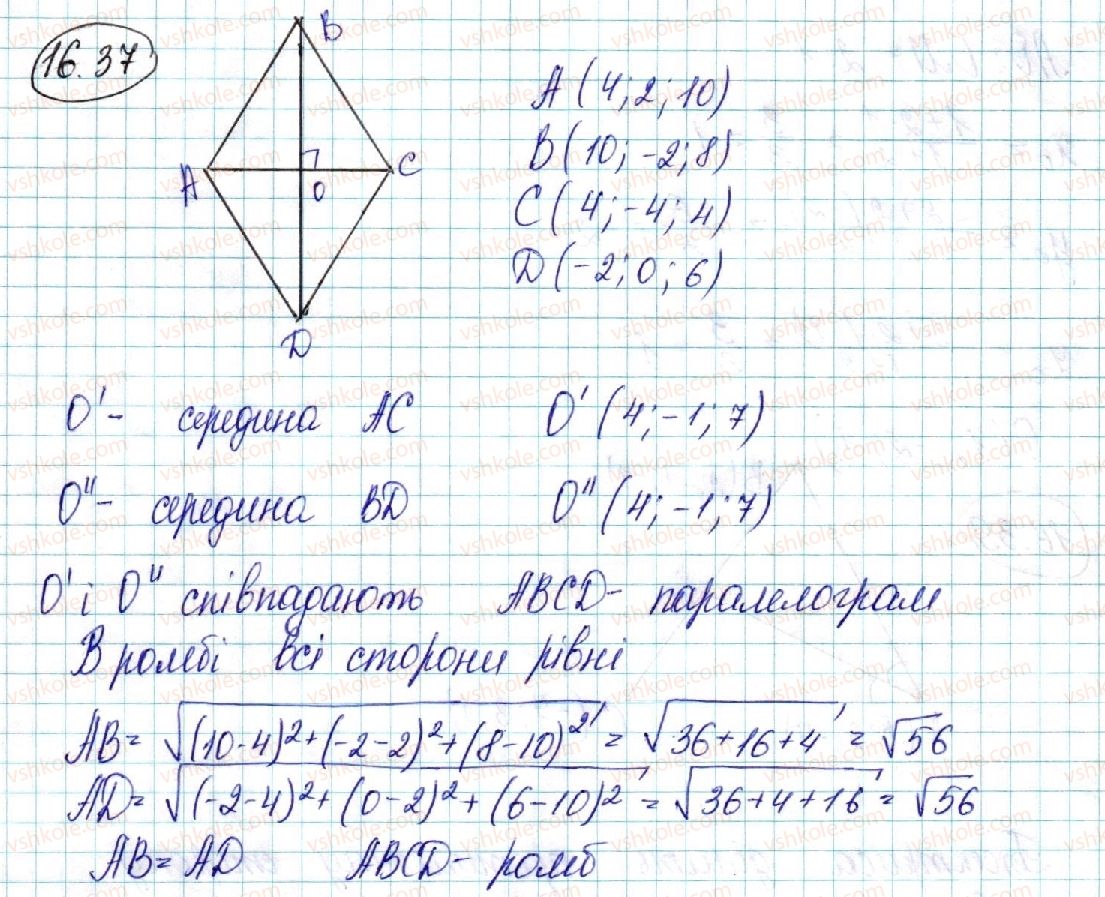 16.37
B
A
C
O
D
A (4; 2; 10)
B (10; -2; 8)
C (4; -4; 4)
D (-2; 0; 6)
O' - середина AC O' (4; -1; 7)
O'' - середина BD O'' (4; -1; 7)
O' і O'' співпадають ABCD - паралелограм
В ромбі всі сторони рівні
AB = √((10-4)² + (-2-2)² + (8-10)²) = √(36+16+4) = √56
AD = √((-2-4)² + (0-2)² + (6-10)²) = √(36+4+16) = √56
AB = AD ABCD - ромб